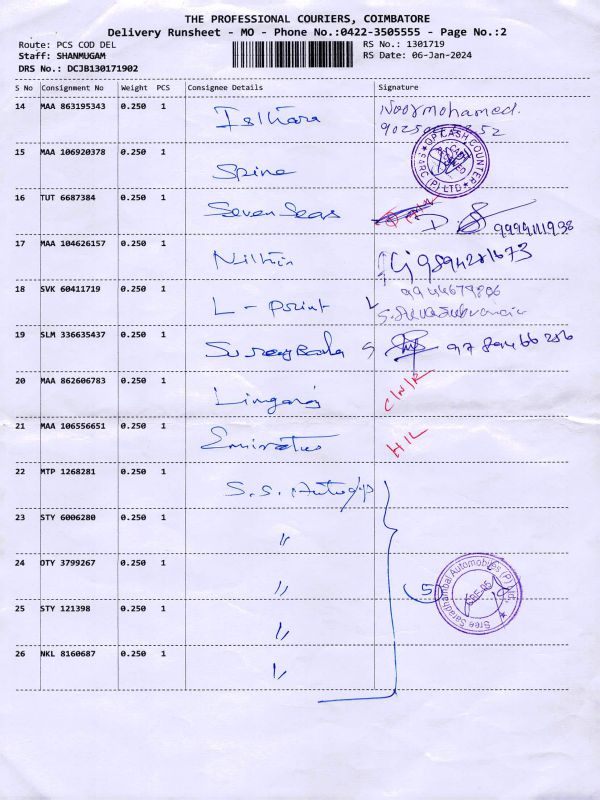 THE PROFESSIONAL COURIERS, COIMBATORE
Delivery Runsheet - MO - Phone No.:0422-3505555 - Page No.:2
Route: PCS COD DEL RS No.: 1301719
Staff: SHANMUGAM RS Date: 06-Jan-2024
DRS No.: DCJB130171902
S No Consignment No Weight PCS Consignee Details Signature
14 MAA 863195343 0.250 1 Noor mohamed.
15 MAA 106920378 0.250 1 Spine
OP CASH COUNTER
SARC (P) LTD
16 TUT 6687384 0.250 1 Seven Seas
17 MAA 104626157 0.250 1 Nithin
18 SVK 60411719 0.250 1 L - Print
19 SLM 336635437 0.250 1
20 MAA 862606783 0.250 1 C/N/R
21 MAA 106556651 0.250 1 Emirates
22 MTP 1268281 0.250 1 S.S.
23 STY 6006280 0.250 1 〃
24 OTY 3799267 0.250 1 〃 5
Sree Saradhambal Automobiles (P) Ltd.
CBE-05
25 STY 121398 0.250 1 〃
26 NKL 8160687 0.250 1 〃